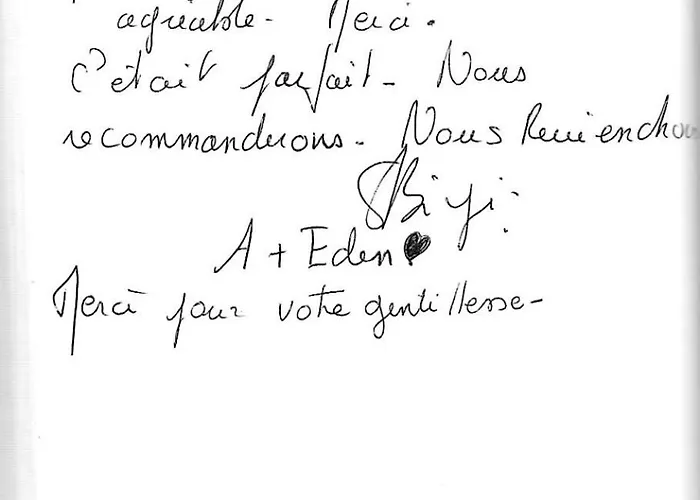 agréable - Merci.
C'était parfait - Nous
recommanderons - Nous Reviendrons
A + Eden
Merci pour votre gentillesse -